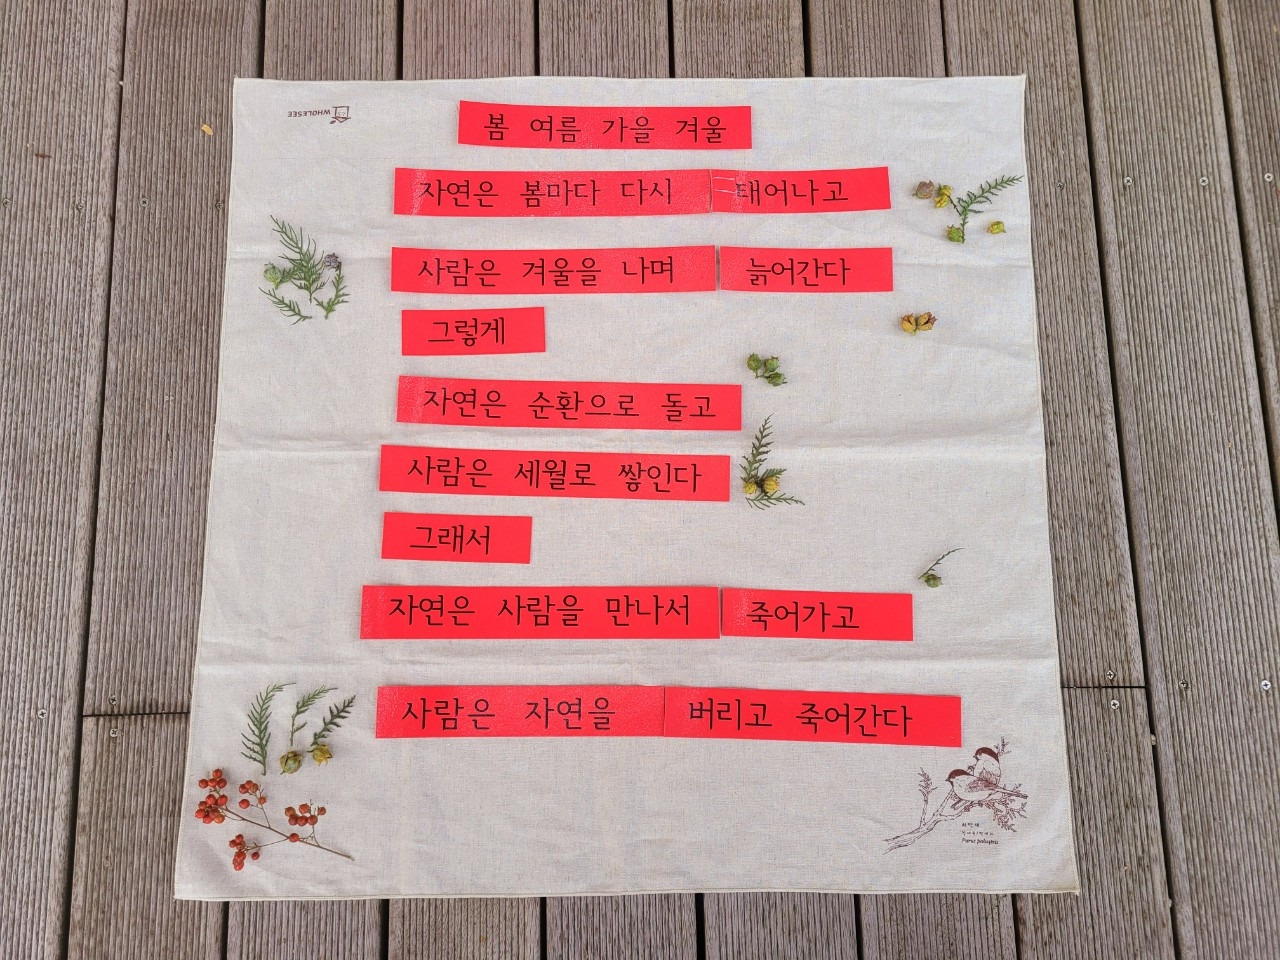 WHOLESEE
봄 여름 가을 겨울
자연은 봄마다 다시 태어나고
사람은 겨울을 나며 늙어간다
그렇게
자연은 순환으로 돌고
사람은 세월로 쌓인다
그래서
자연은 사람을 만나서 죽어가고
사람은 자연을 버리고 죽어간다
Parus palustris